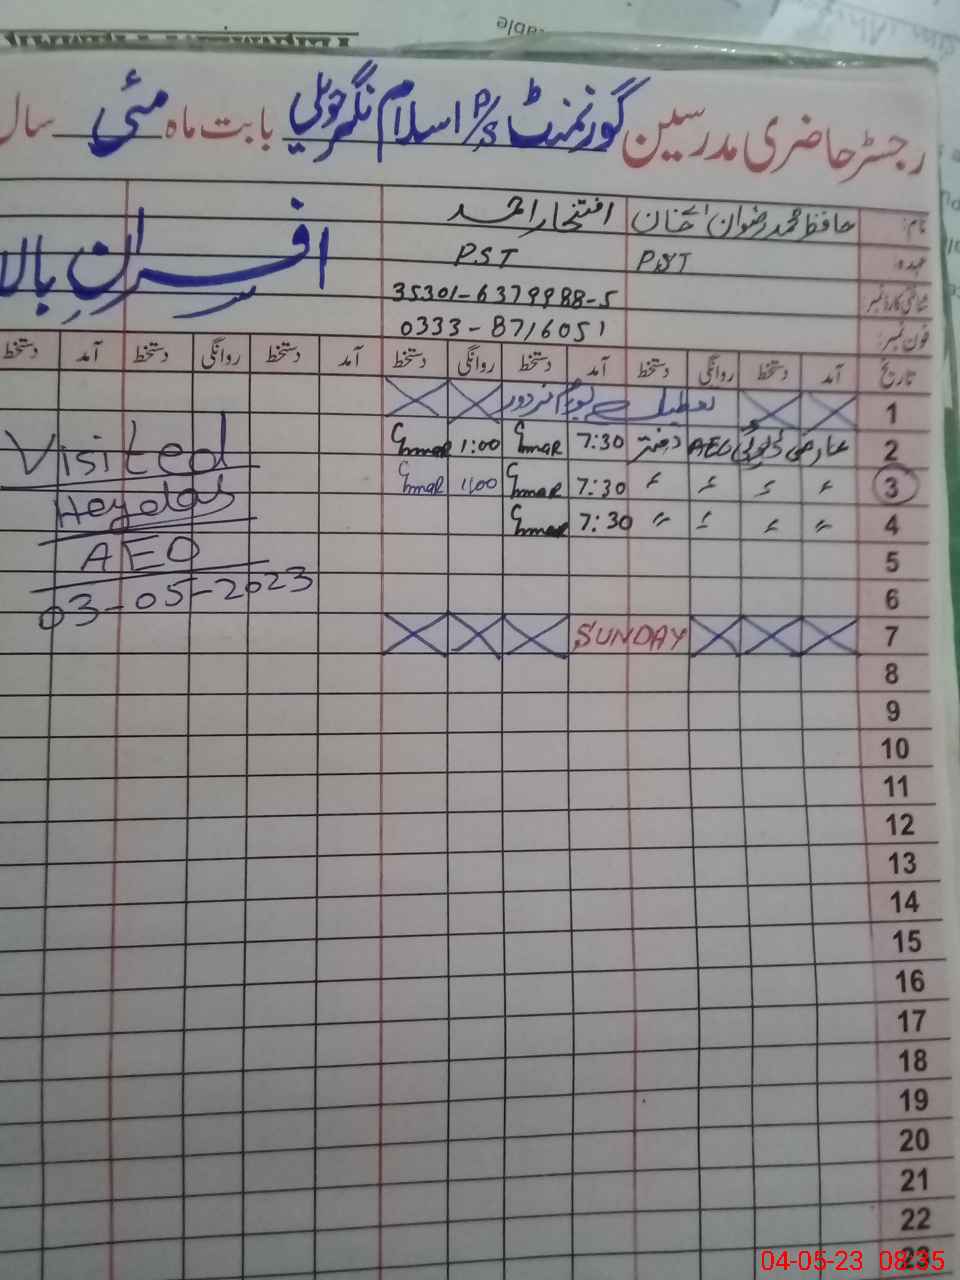 رجسٹر حاضری مدرسین گورنمنٹ P/S اسلام نگر حویلی بابت ماہ مئی سال
نام: حافظ محمد رضوان خان افتخار احمد
عہدہ: PST PST
شناختی کارڈ نمبر 35301-6379988-5
فون نمبر: 0333-8716051
افسران بالا
تاریخ آمد دستخط روانگی دستخط آمد دستخط روانگی دستخط آمد دستخط روانگی دستخط آمد دستخط
1 تعطیل
2 عارضی ڈیوٹی AEO دفتر 7:30 1:00
3 7:30 1:00
4 7:30
5
6
7 SUNDAY
8
9
10
11
12
13
14
15
16
17
18
19
20
21
22
23
Visited
AEO
03-05-2023
04-05-23 08:35